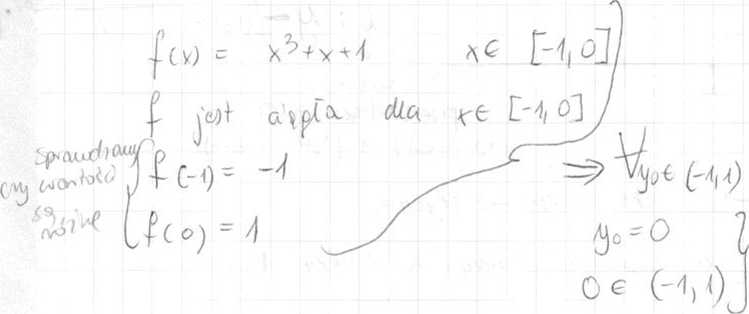 f(x) = x³+x+1 x∈ [-1,0]
f jest ciągła dla x∈ [-1,0]
sprawdzamy czy wartości są różne
f(-1) = -1
f(0) = 1
⇒ ∀y₀∈ (-1,1)
y₀ = 0
0 ∈ (-1,1)